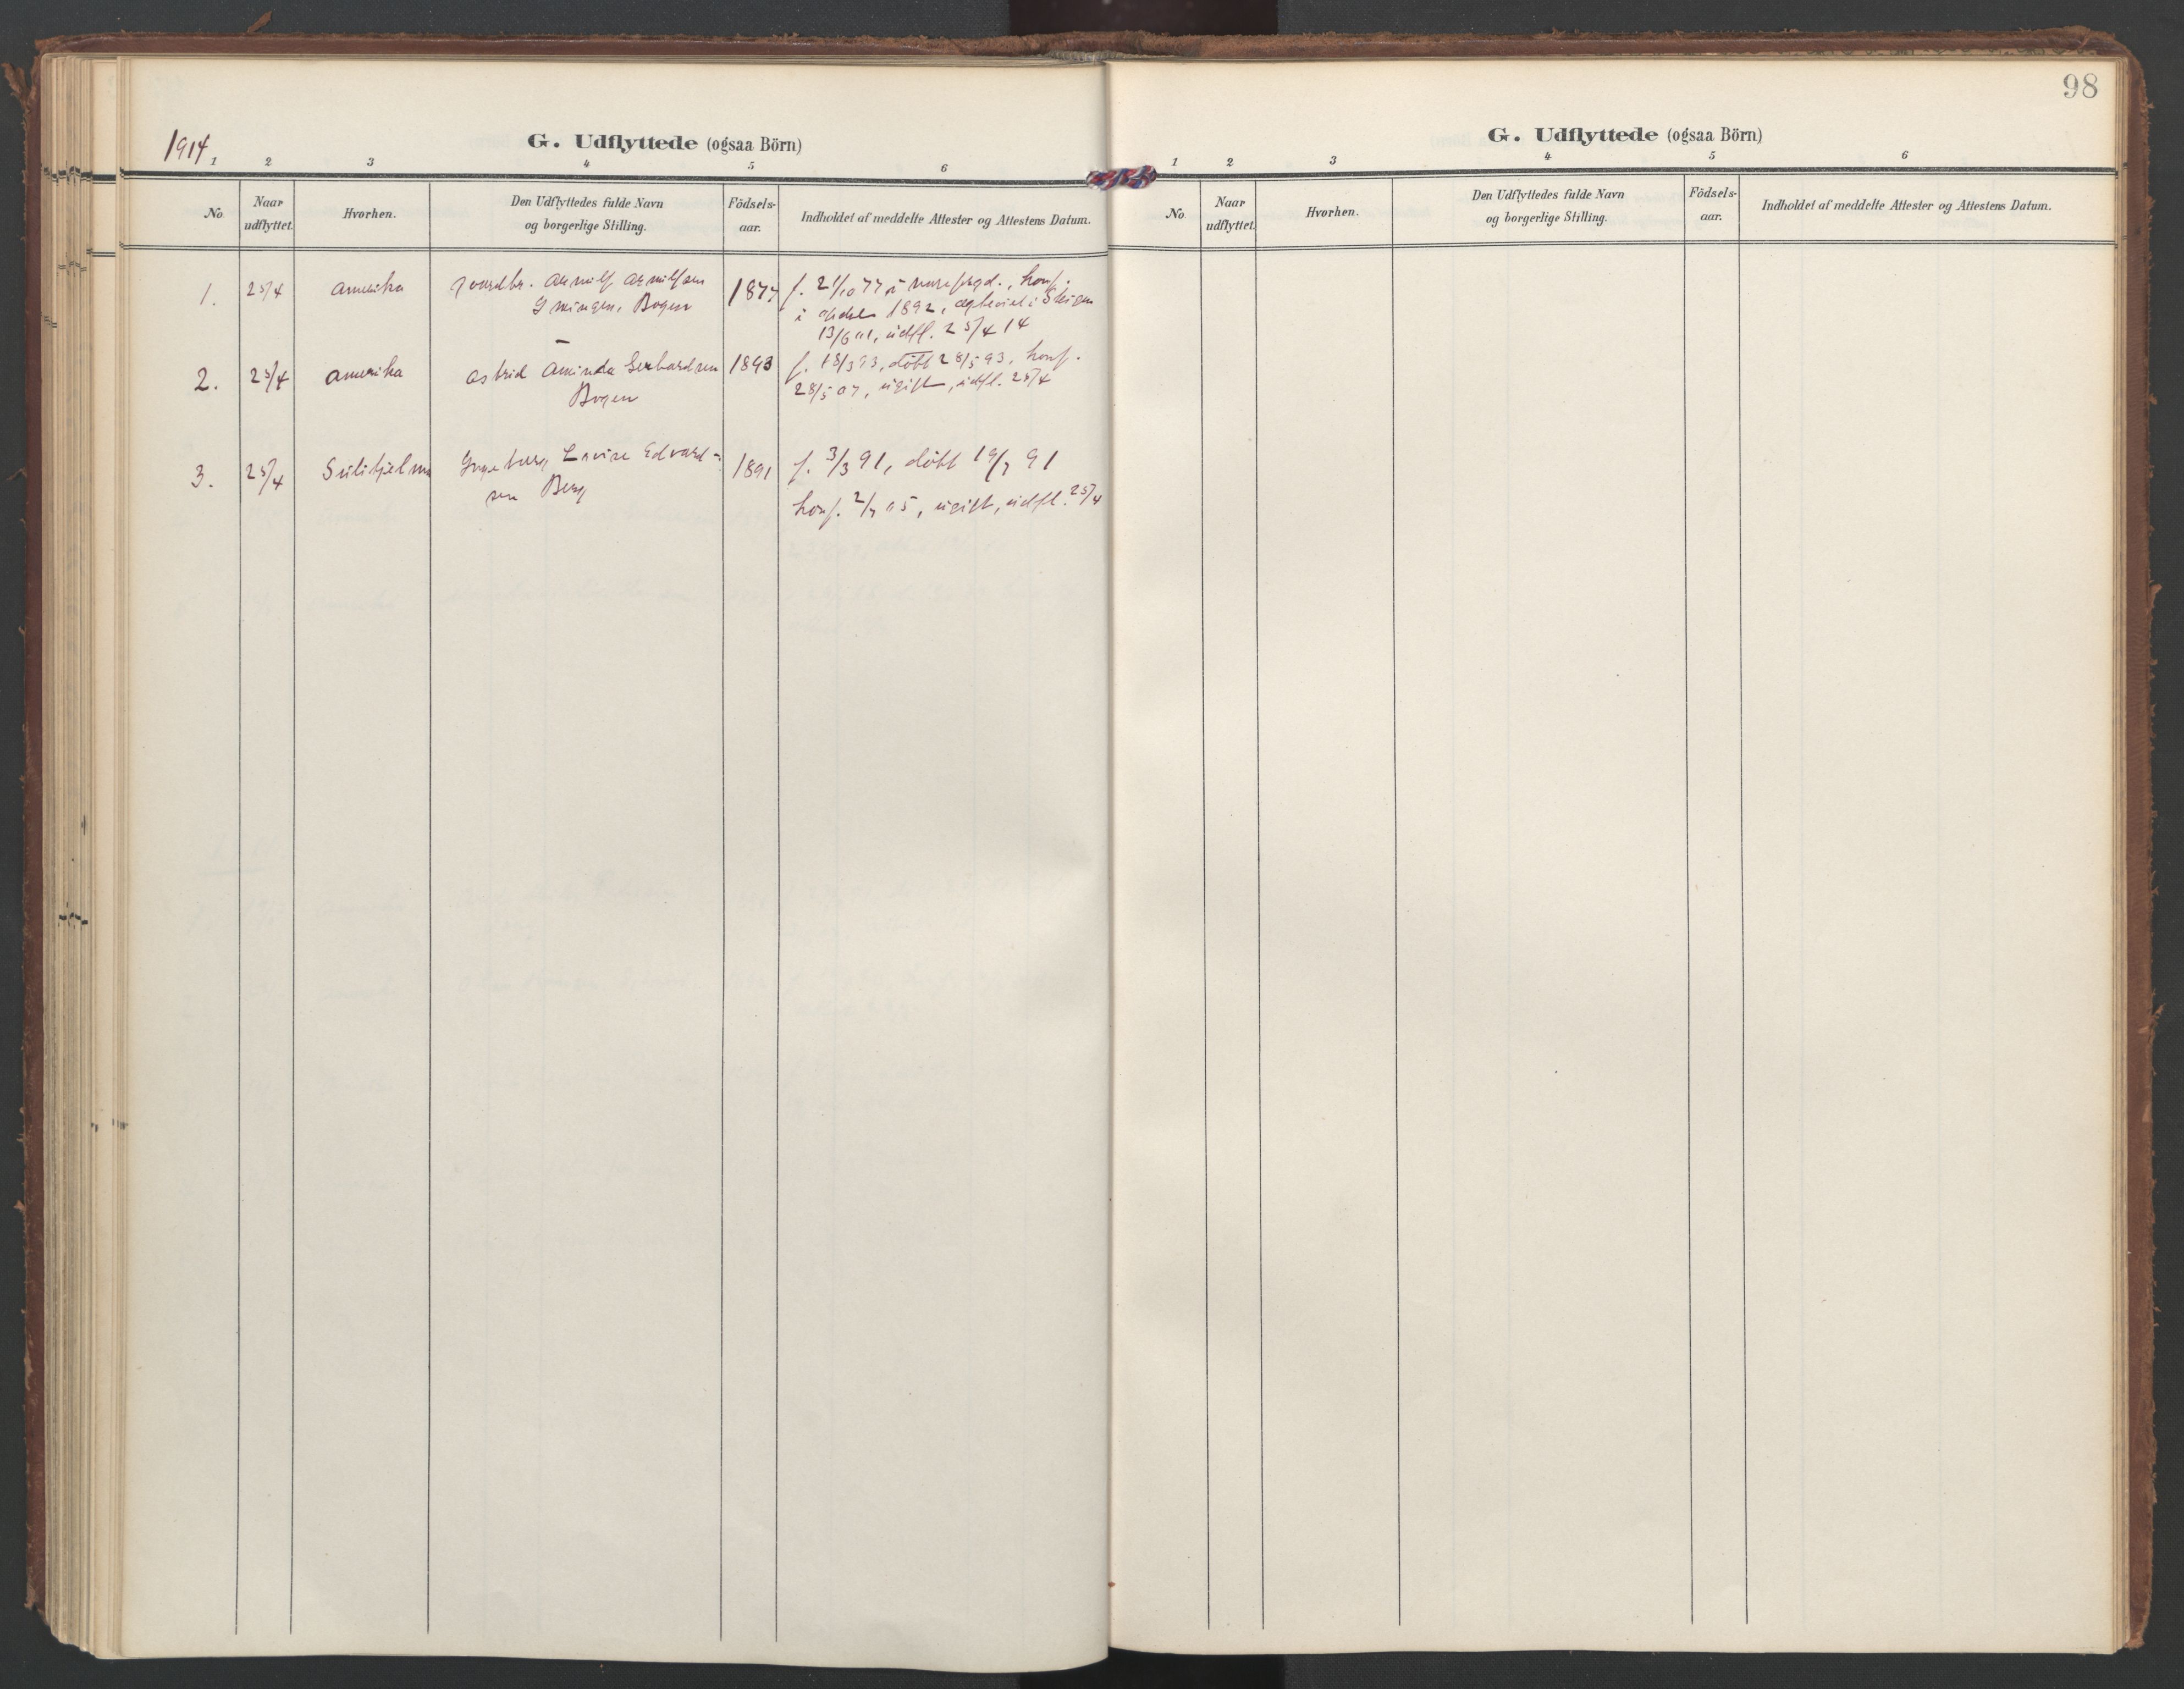 98
1914.
G. Udflyttede (ogsaa Börn)
1 2 3 4 5 6
No. Naar udflyttet. Hvorhen. Den Udflyttedes fulde Navn og borgerlige Stilling. Födsels-aar. Indholdet af meddelte Attester og Attestens Datum.
1. 25/4 Amerika Gaardbr. Arnulf Arnulfsen 1877 f. 21/10 77 i konf.
Bogen i 1892, i Steigen
13/6 01, udfl. 25/4 14
2. 25/4 Amerika Astrid Aminda Gerhardsen 1893 f. 18/3 93, döbt 28/5 93, konf.
Bogen 28/5 07, ugift, udfl. 25/4
3. 25/4 Sulitjelma Ingeborg Lovise Edvard- 1891 f. 3/3 91, döbt 19/7 91
sen Berg konf. 2/7 05, ugift, udfl. 25/4
G. Udflyttede (ogsaa Börn)
1 2 3 4 5 6
No. Naar udflyttet. Hvorhen. Den Udflyttedes fulde Navn og borgerlige Stilling. Födsels-aar. Indholdet af meddelte Attester og Attestens Datum.